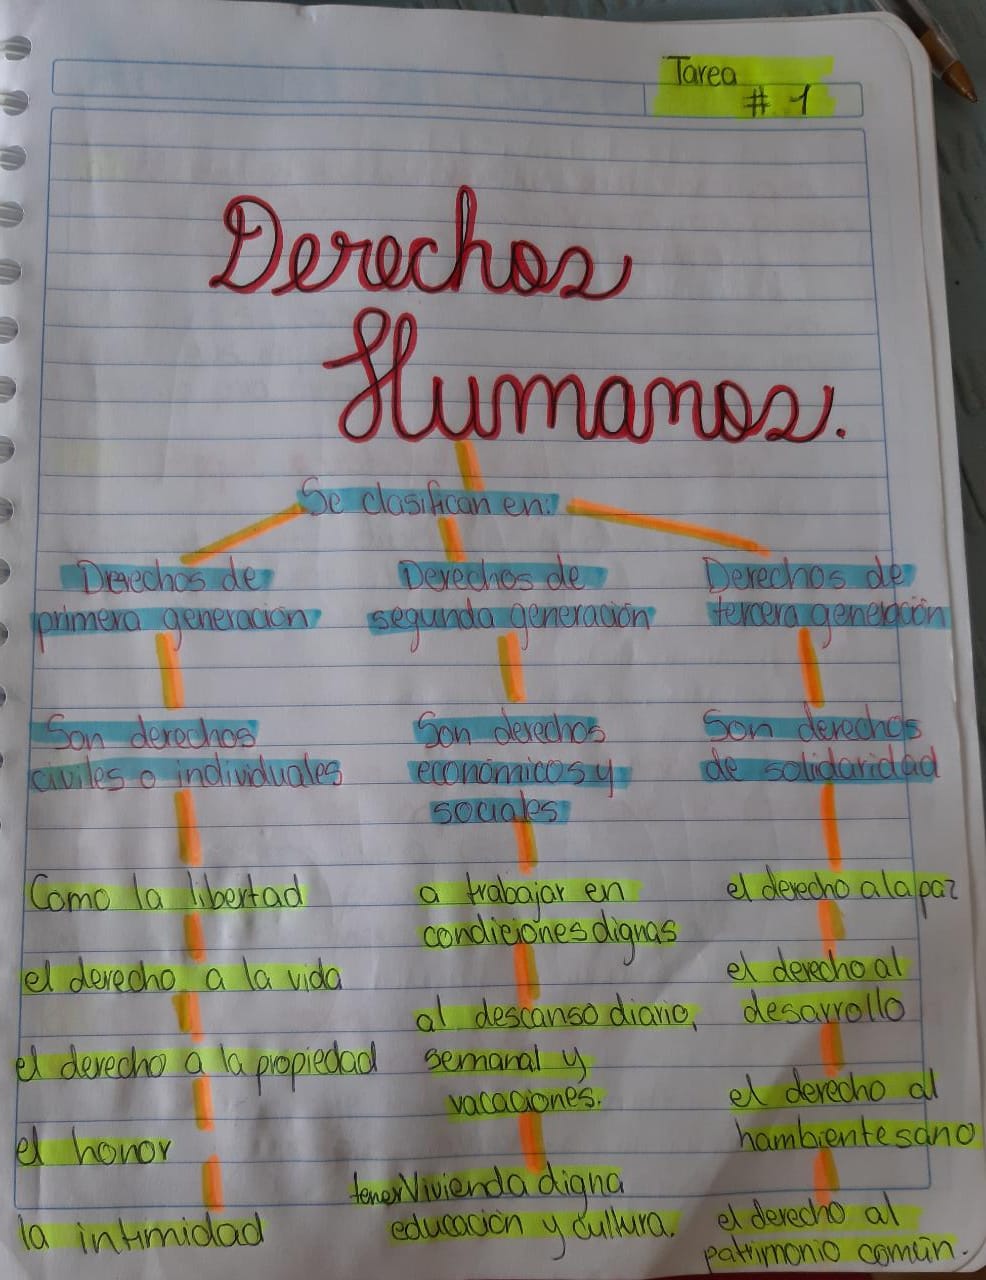 Tarea
# 1
Derechos
Humanos.
Se clasifican en:
Derechos de
primera generación
Derechos de
segunda generación
Derechos de
tercera generación
Son derechos
civiles o individuales
Son derechos
económicos y
sociales
Son derechos
de solidaridad
Como la libertad
el derecho a la vida
el derecho a la propiedad
el honor
la intimidad
a trabajar en
condiciones dignas
al descanso diario,
semanal y
vacaciones.
tener Vivienda digna
educación y cultura.
el derecho a la paz
el derecho al
desarrollo
el derecho al
hambiente sano
el derecho al
patrimonio común.